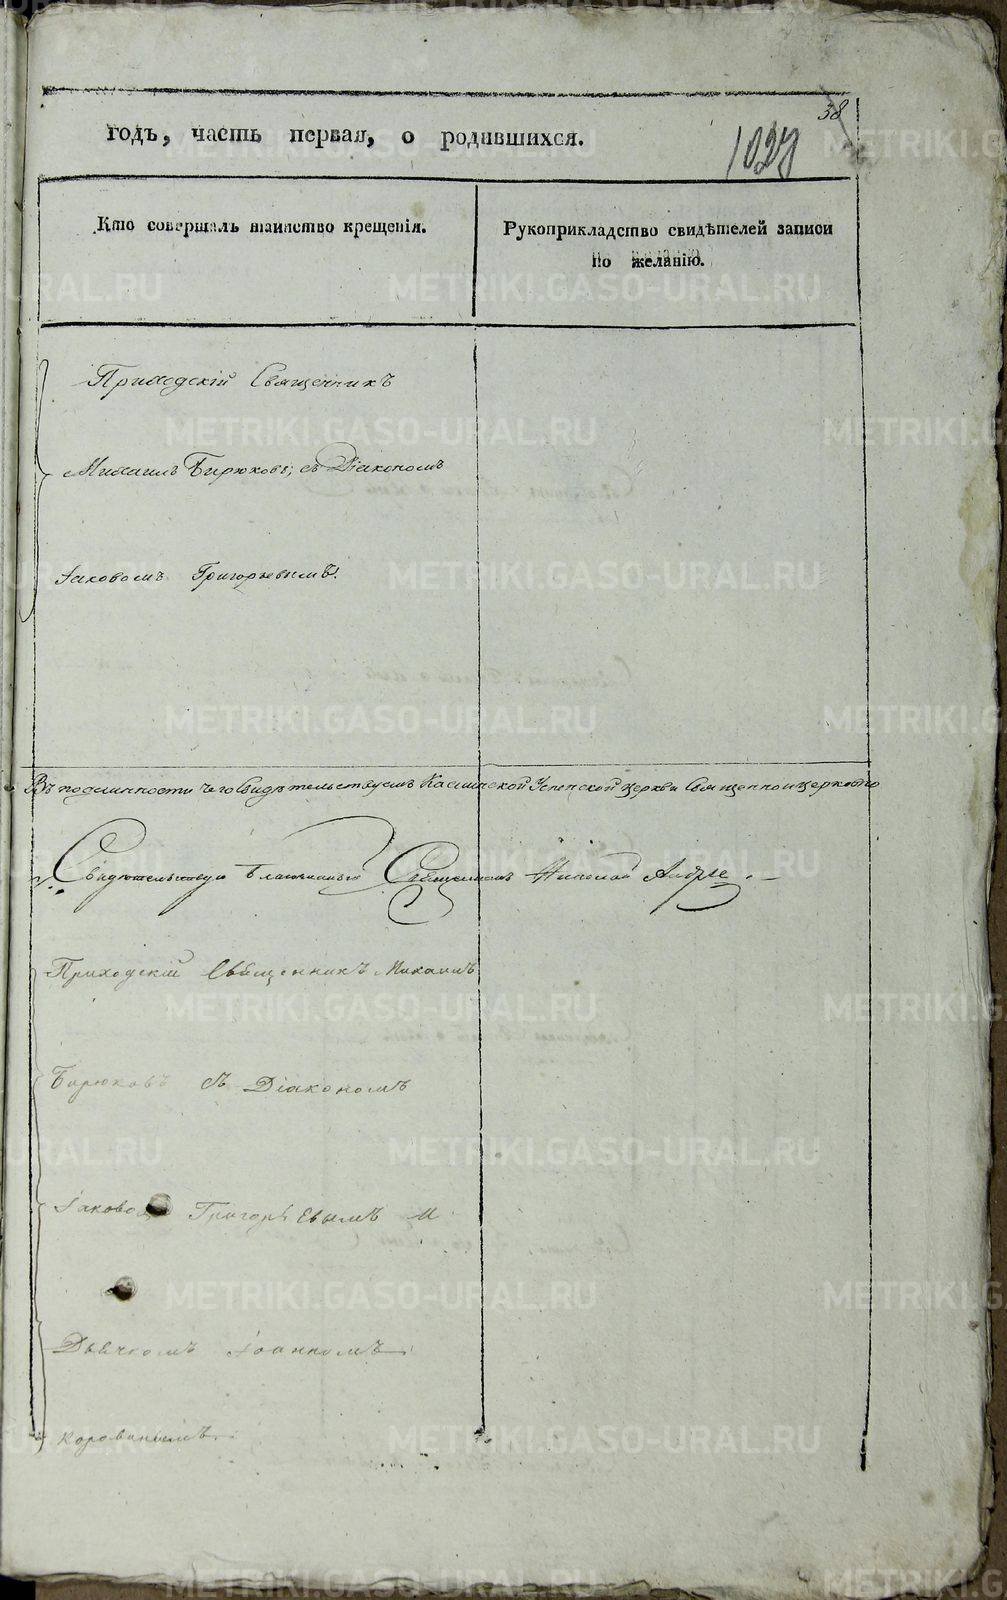 38
годъ, часть первая, о родившихся.
1027
Кто совершалъ таинство крещенія.
Рукоприкладство свидѣтелей записи
по желанію.
Приходскій Священникъ
Михаилъ Бирюковъ, съ Діакономъ
Іаковомъ Григорьевымъ.
Въ подлинности чего Свидѣтельствуемъ Каслинской Успенской церкви Священноицерковно
Свидѣтельствую Благочинный Священникъ Николай
Приходскій Священникъ Михаилъ
Бирюковъ съ Діакономъ
Іаково Григорьевымъ и
Дьячкомъ Іоанномъ
METRIKI.GASO-URAL.RU